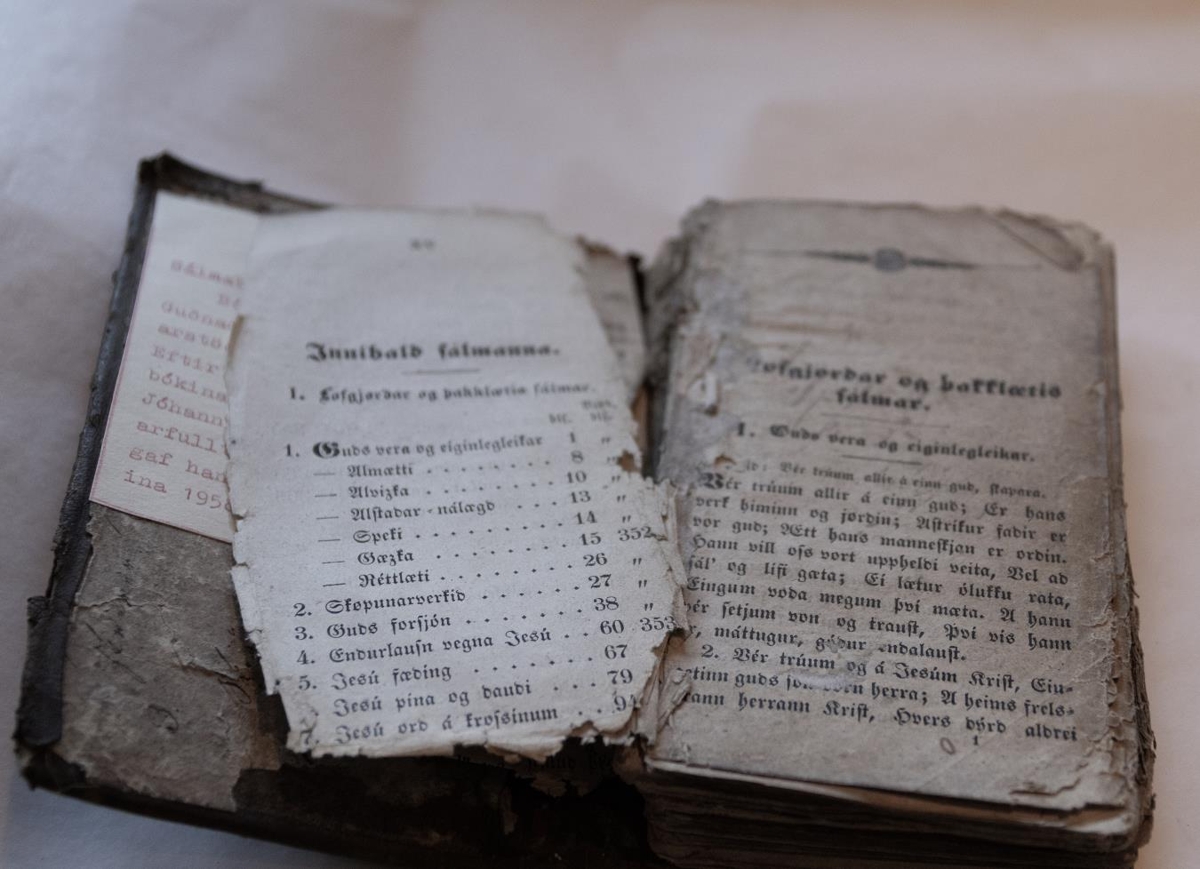 Guðna
Eftir
bókina
gaf han
ina 195
Innihald sálmanna.
1. Lofgjørdar og þakklætis sálmar.
1. Guds vera og eiginlegleikar 1 „
— Almætti . . . . . . . . 8 „
— Alvizka . . . . . . . . 10 „
— Alstadar-nálægd . . . 13 „
— Speki . . . . . . . . . 14 „
— Gæzka . . . . . . . . 15 352
— Réttlæti . . . . . . . . 26 „
2. Skøpunarverkid . . . . . . 27 „
3. Guds forsjón . . . . . . . 38 „
4. Endurlausn vegna Jesú . . 60 353
5. Jesú fæding . . . . . . . 67
Jesú pína og daudi . . . 79
7. Jesú ord á krossinum . . 94
Lofgjørdar og þakklætis
sálmar.
1. Guds vera og eiginlegleikar.
Vér trúum allir á einn gud, skapara.
Vér trúum allir á einn gud; Er hans
verk himinn og jørdin; Astrikur fadir er
vor gud; Ætt hans manneskjan er ordin.
Hann vill oss vort uppheldi veita, Vel ad
sál' og lífi gæta; Ei lætur ólukku rata,
Eingum voda megum því mæta. A hann
vér setjum von og traust, Því vis hann
er, máttugur, gódur endalaust.
2. Vér trúum og á Jesúm Krist, Ein-
guds son vorn herra; A heims frels-
herrann Krist, Hvers dýrd aldrei
1